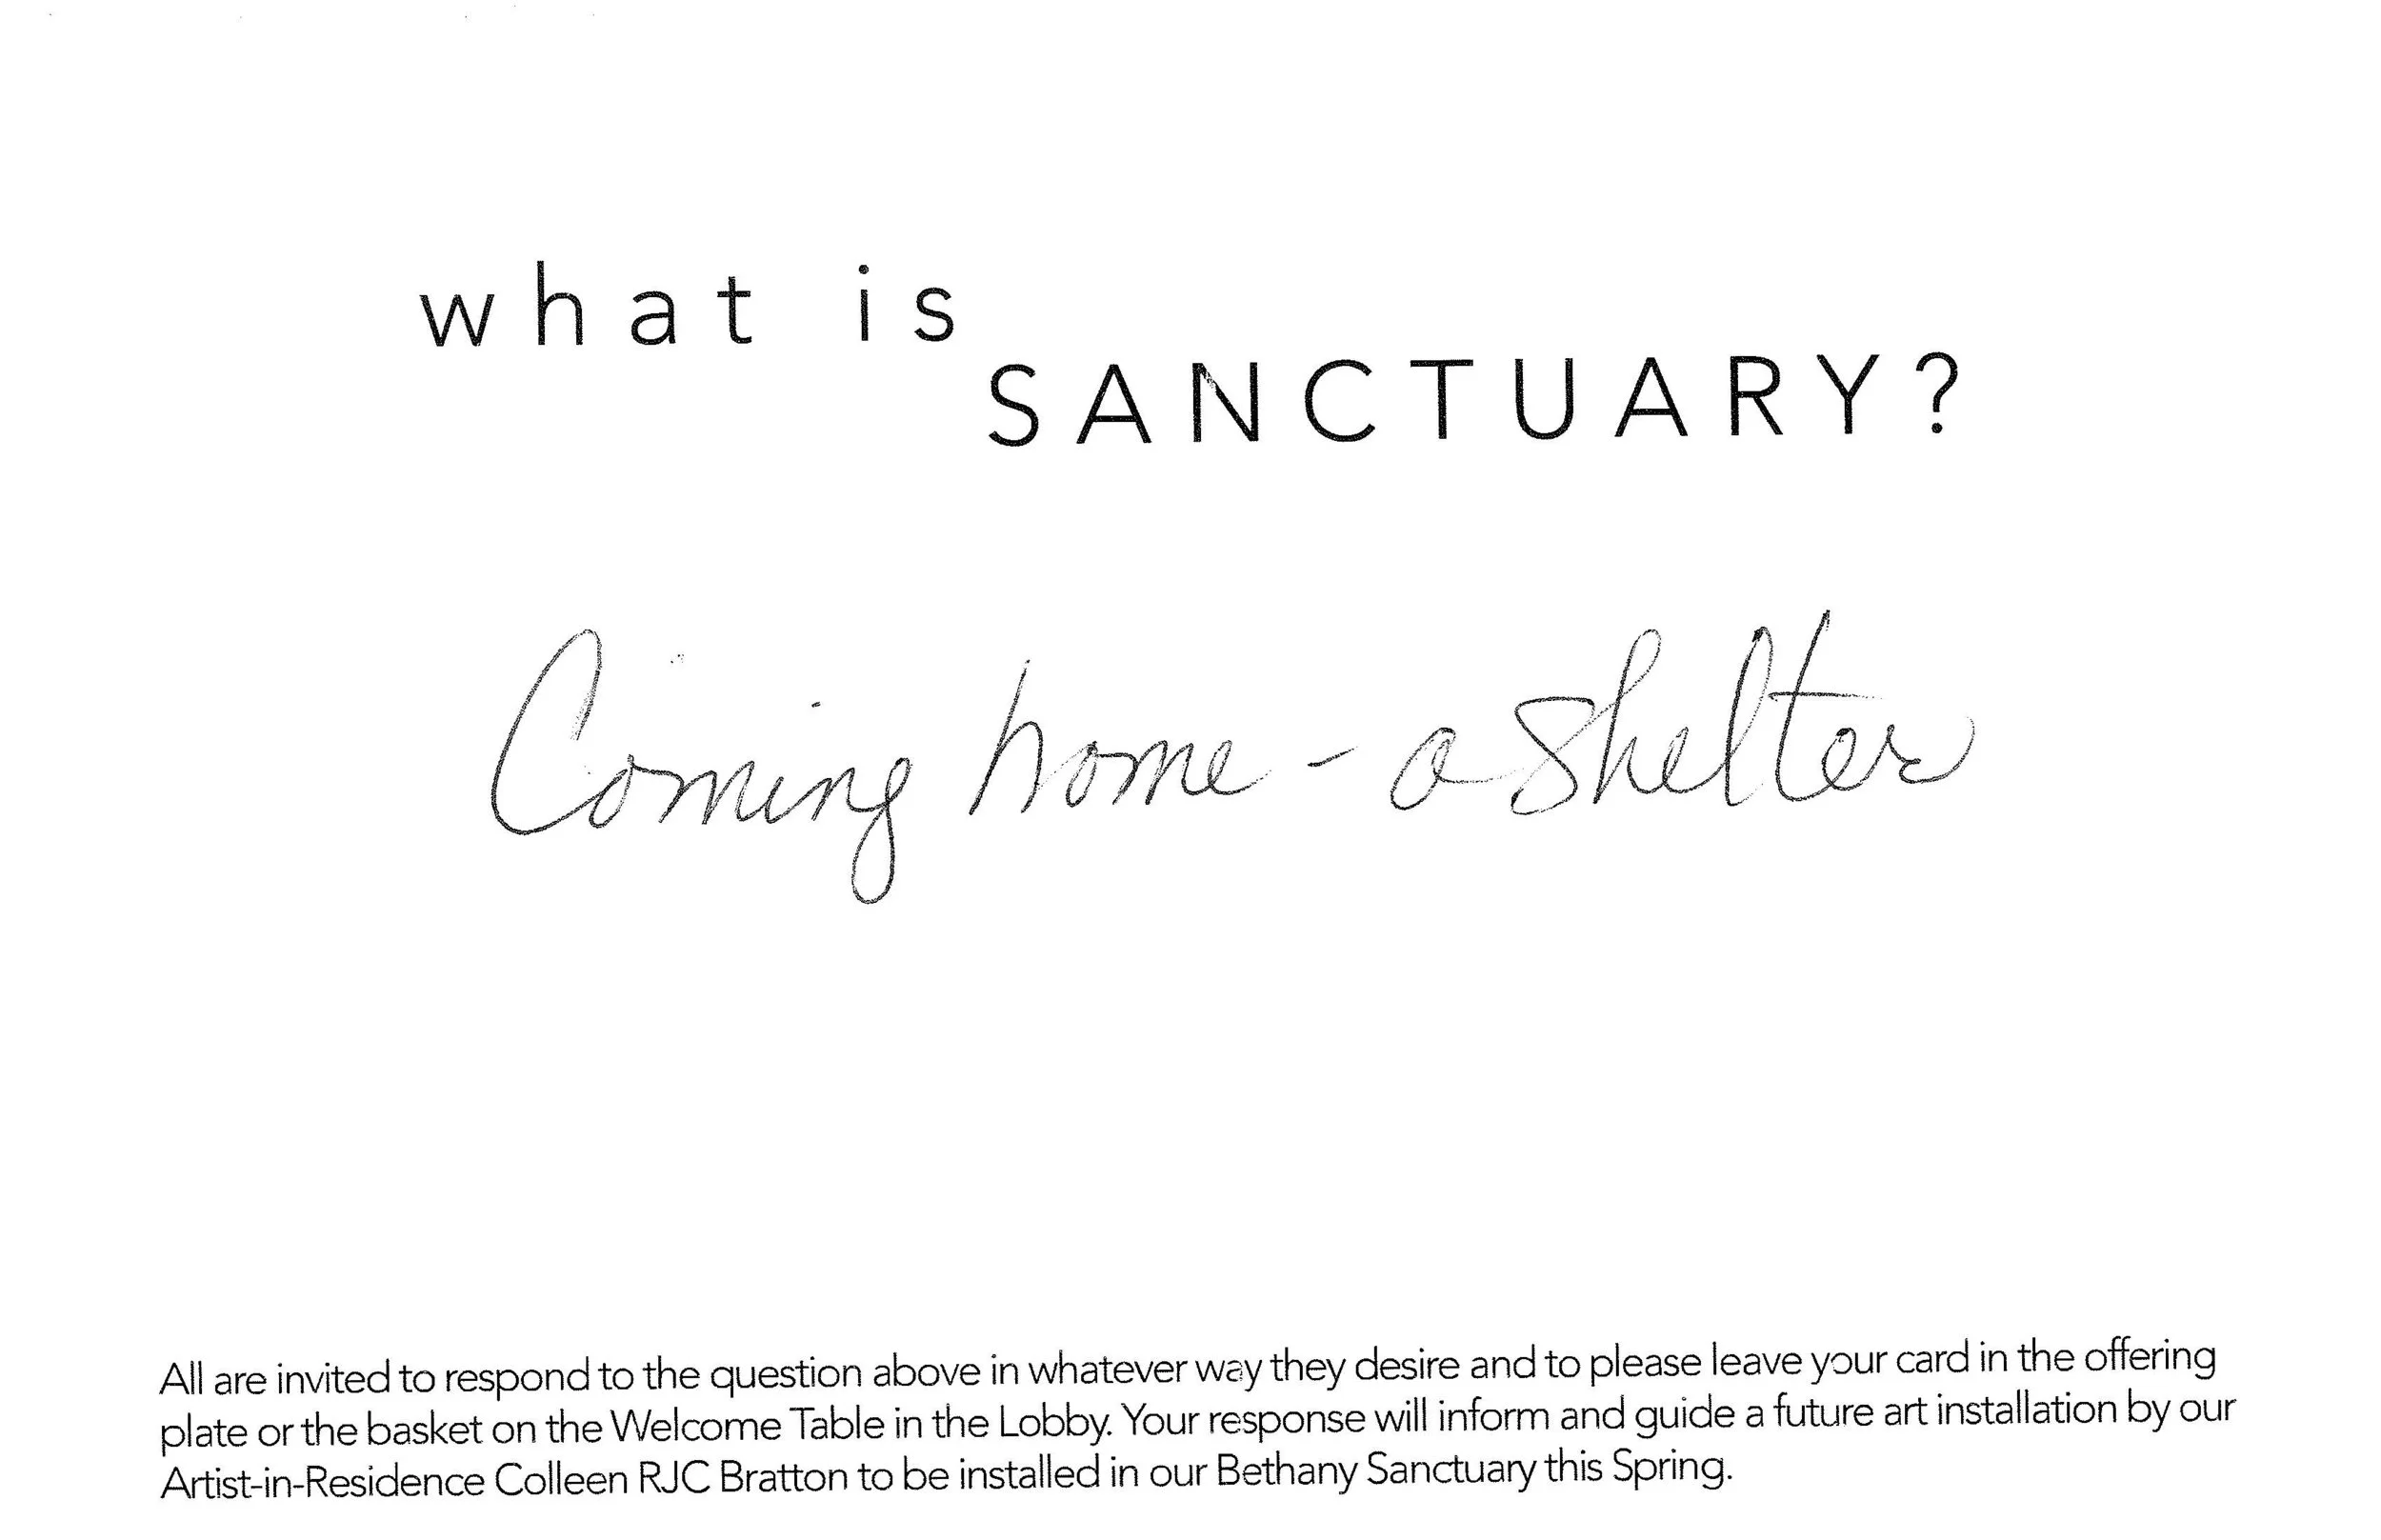 what is
SANCTUARY?
Coming home - a shelter
All are invited to respond to the question above in whatever way they desire and to please leave your card in the offering
plate or the basket on the Welcome Table in the Lobby. Your response will inform and guide a future art installation by our
Artist-in-Residence Colleen RJC Bratton to be installed in our Bethany Sanctuary this Spring.